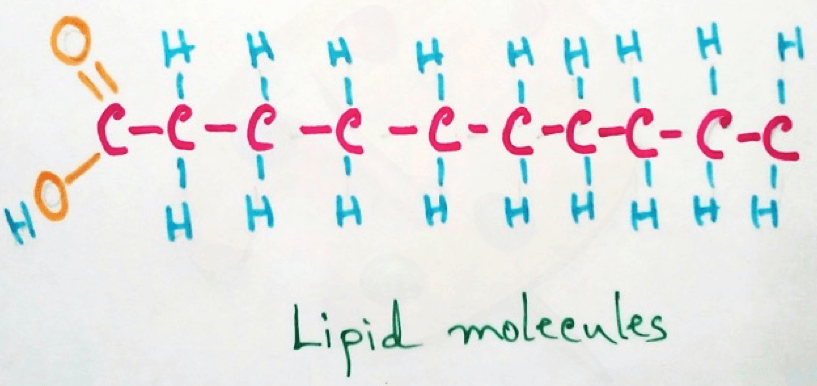 O H H H H H H H H H
C-C-C-C-C-C-C-C-C-C
H O H H H H H H H H H
Lipid molecules